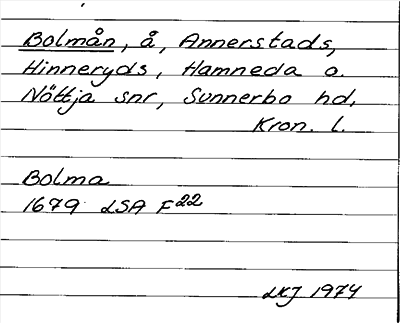 Bolmån, å, Annerstads,
Hinneryds, Hamneda o.
Nöttja snr, Sunnerbo hd,
Kron. l.
Bolma
1679 LSA F22
LKJ 1974